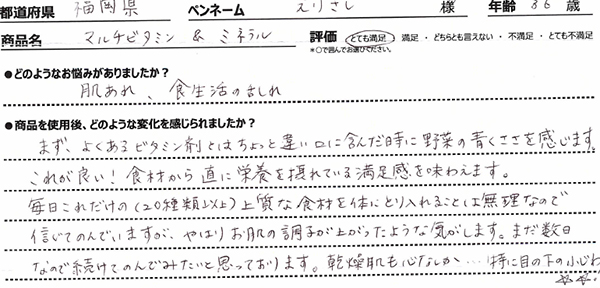 都道府県 福岡県 ペンネーム えりさし 様 年齢 36 歳
商品名 マルチビタミン & ミネラル 評価 とても満足 ・ 満足 ・ どちらとも言えない ・ 不満足 ・ とても不満足
*○で囲んでお選びください。
●どのようなお悩みがありましたか？
肌あれ、食生活のみだれ
●商品を使用後、どのような変化を感じられましたか？
まず、よくあるビタミン剤とはちょっと違い口に含んだ時に野菜の青くささを感じます。
これが良い！食材から直に栄養を摂れている満足感を味わえます。
毎日これだけの(20種類以上)上質な食材を体にとり入れることは無理なので
信じてのんでいますが、やはりお肌の調子が上がったような気がします。まだ数日
なので続けてのんでみたいと思っております。乾燥肌も心なしか…特に目の下の小じわ
☆☆!